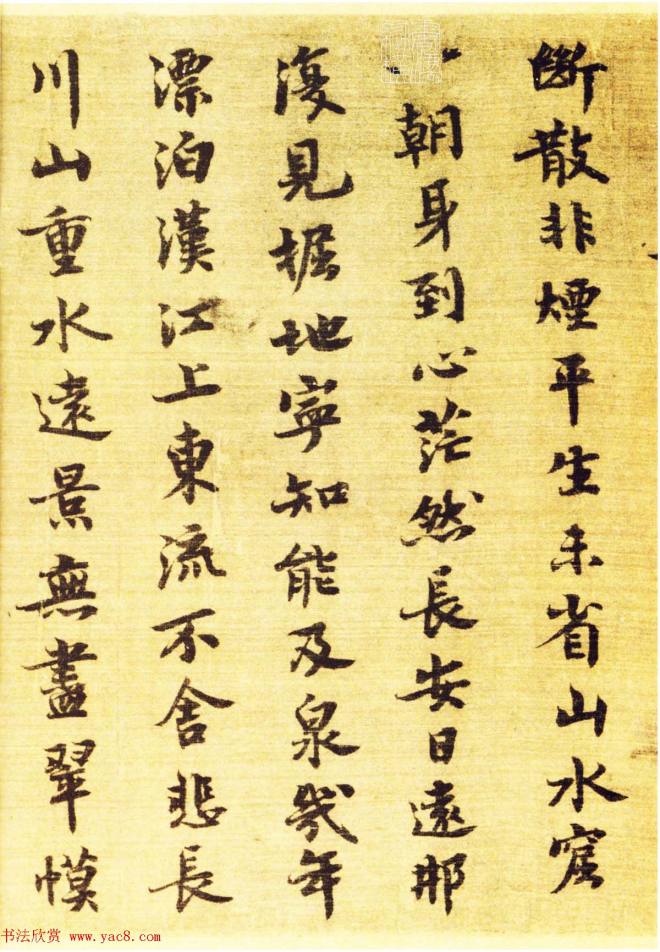 斷散非煙平生未省山水窟
一朝身到心茫然長安日遠那
復見掘地寧知能及泉幾年
漂泊漢江上東流不舍悲長
川山重水遠景無盡翠幙
书法欣赏 www.yac8.com